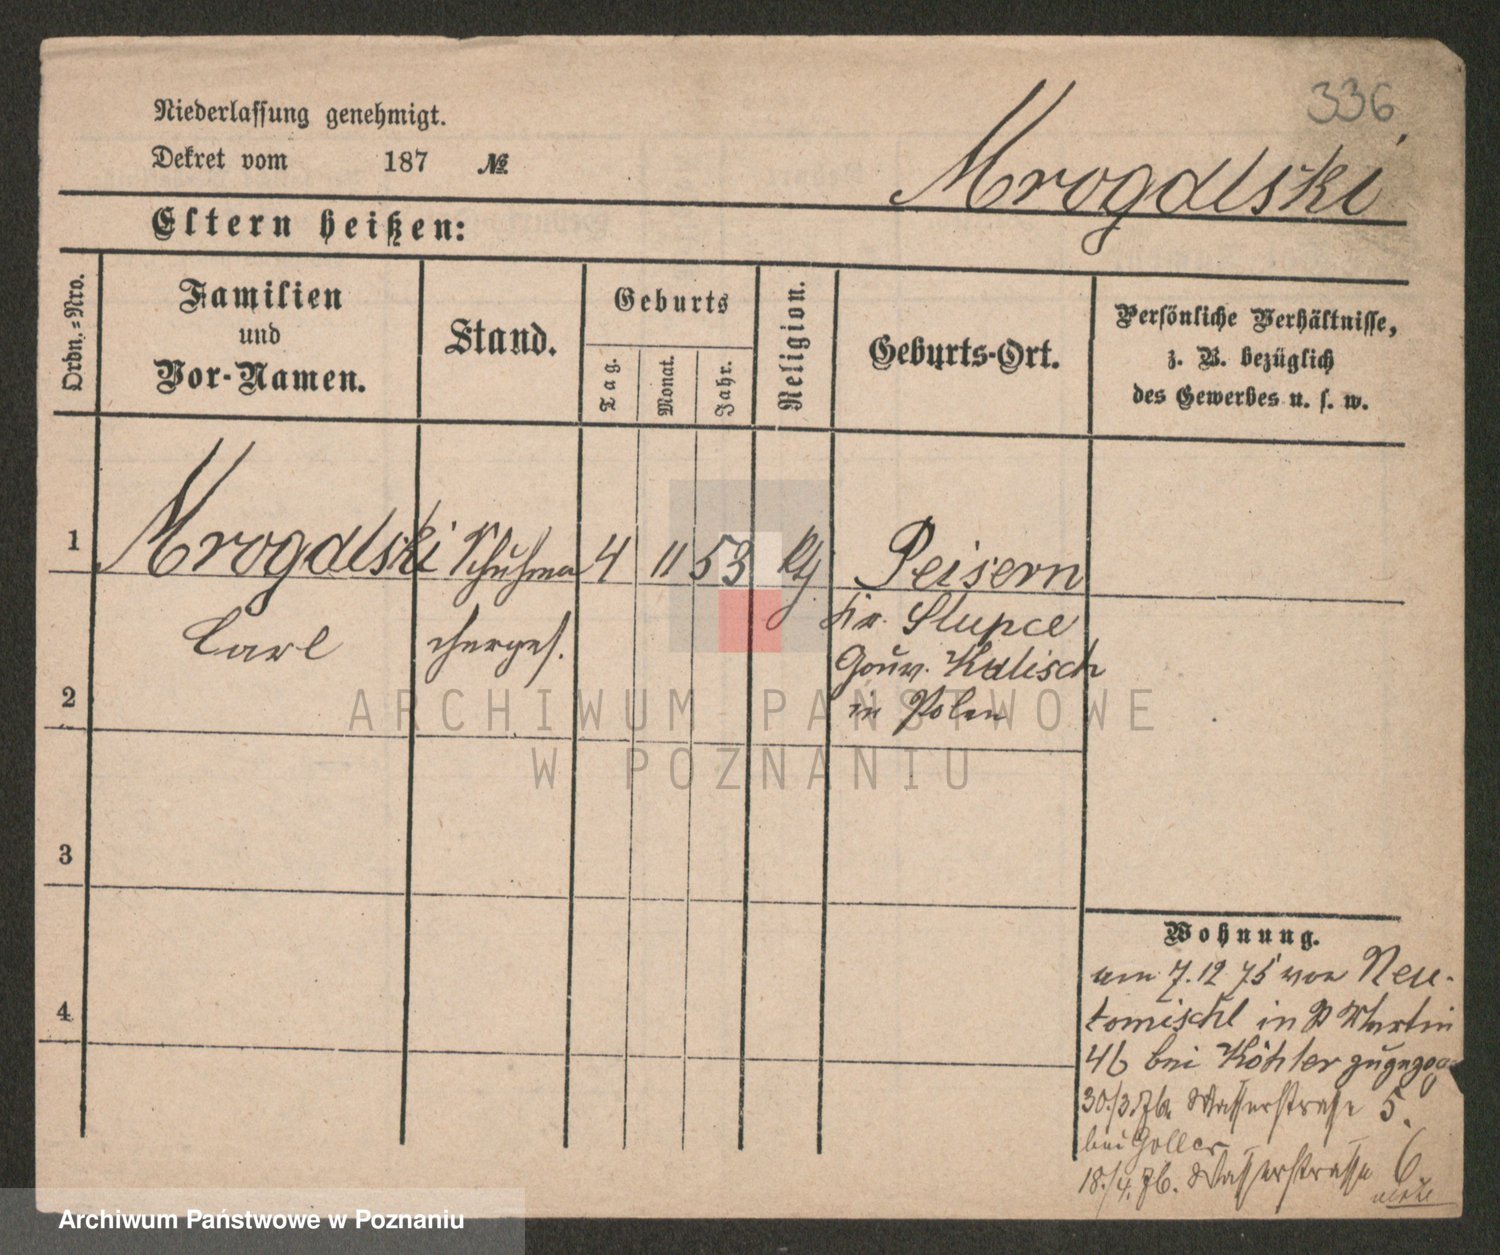 336
Niederlassung genehmigt.
Dekret vom 187 №
Mrogdlski
Eltern heißen:
Ordn.=Nro.
Familien
und
Vor-Namen.
Stand.
Geburts
Tag.
Monat.
Jahr.
Religion.
Geburts-Ort.
Persönliche Verhältnisse,
z. B. bezüglich
des Gewerbes u. s. w.
1 Mrogdlski Schuhma 4 11 53 Peisern
Carl cherges. Kr. Slupce
Gouv. Kalisch
2 in Polen
ARCHIWUM PAŃSTWOWE
W POZNANIU
3
4
Wohnung.
am 7.12 75 von Neu-
tomischl in St Martin
46 bei Köhler zugezogen
30./3. 76. Wasserstrasse 5.
bei Goller
18./4. 76. Wasserstrasse 6
Archiwum Państwowe w Poznaniu